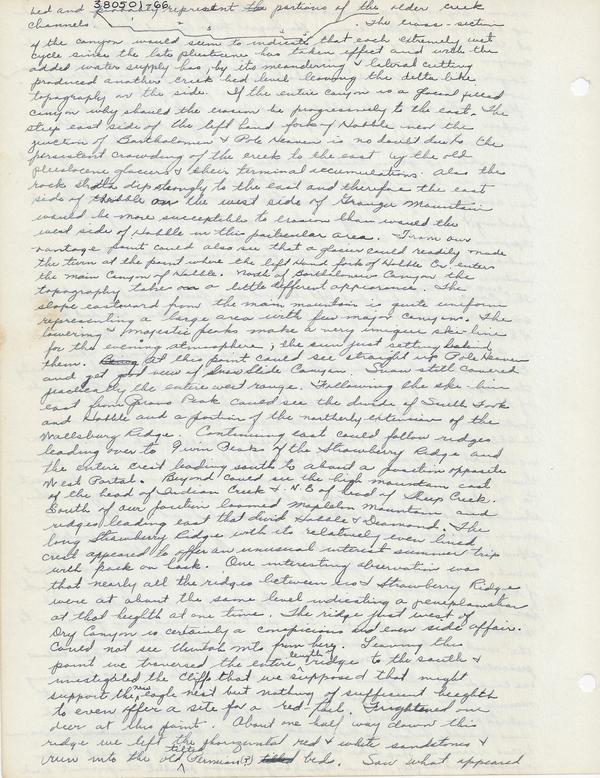 bed and probably represent the portions of the older creek
380501-66
channels. The cross-section
of the canyon would seem to indicate that each extremely wet
cycle since the late pleistocene has taken effect and with the
added water supply has by its meandering & lateral cutting
produced another creek bed level leaving the delta like
topography on the side. If the entire canyon is a glacial filled
canyon why should the erosion be progressively to the east. The
steep east side of the left hand fork of Hobble near the
junction of Bartholomew & Pole Heaven is no doubt due to the
persistent crowding of the creek to the east by the old
pleistocene glaciers & their terminal accumulations. Also the
rock strata dip strongly to the east and therefore the east
side of Hobble on the west side of Granger Mountain
would be more susceptible to erosion than would the
west side of Hobble in this particular area. From our
vantage point could also see that a glacier could readily made
the turn at the point where the left Hand fork of Hobble Cr. enters
the main Canyon of Hobble. North of Bartholomew Canyon the
topography takes on a little different appearance. The
slope eastward from the main mountain is quite uniform
representing a large area with few major canyons. The
towering & majestic peaks make a very unique ski-line
for the evening atmosphere, the sun just setting behind
them. At this point could see straight up Pole Heaven
and get good view of Snow Slide Canyon. Snow still covered
practically the entire west range. Following the ski-line
east from Provo Peak could see the divide of South Fork
and Hobble and a portion of the northerly extension of the
Wallsburg Ridge. Continuing east could follow ridges
leading over to Twin Peaks of the Strawberry Ridge and
the entire crest leading south to about a position opposite
West Portal. Beyond could see the high mountain east
of the head of Indian Creek & N.E. of head of Sheep Creek.
South of our position loomed Mapleton Mountain and
ridges leading east that divid Hobble & Diamond. The
long Strawberry Ridge with its relatively even lined
crest appeared to offer an unusual interest summer trip
with pack on back. One interesting observation was
that nearly all the ridges between us & Strawberry Ridge
were at about the same level indicating a peneplanation
at that heighth at one time. The ridge just west of
Dry Canyon is certainly a conspicious and even side affair.
Could not see Uintah Mts from here. Leaving this
point we traversed the entire length of ridge to the south &
investigated the Cliffs that we supposed that might
support the new eagle nest but nothing of sufficient heighth
to even offer a site for a red tail. Frightened one
deer at this point. About one half way down this
ridge we left the horizontal red & white sandstones &
run into the old tilted Permian(?) beds. Saw what appeared